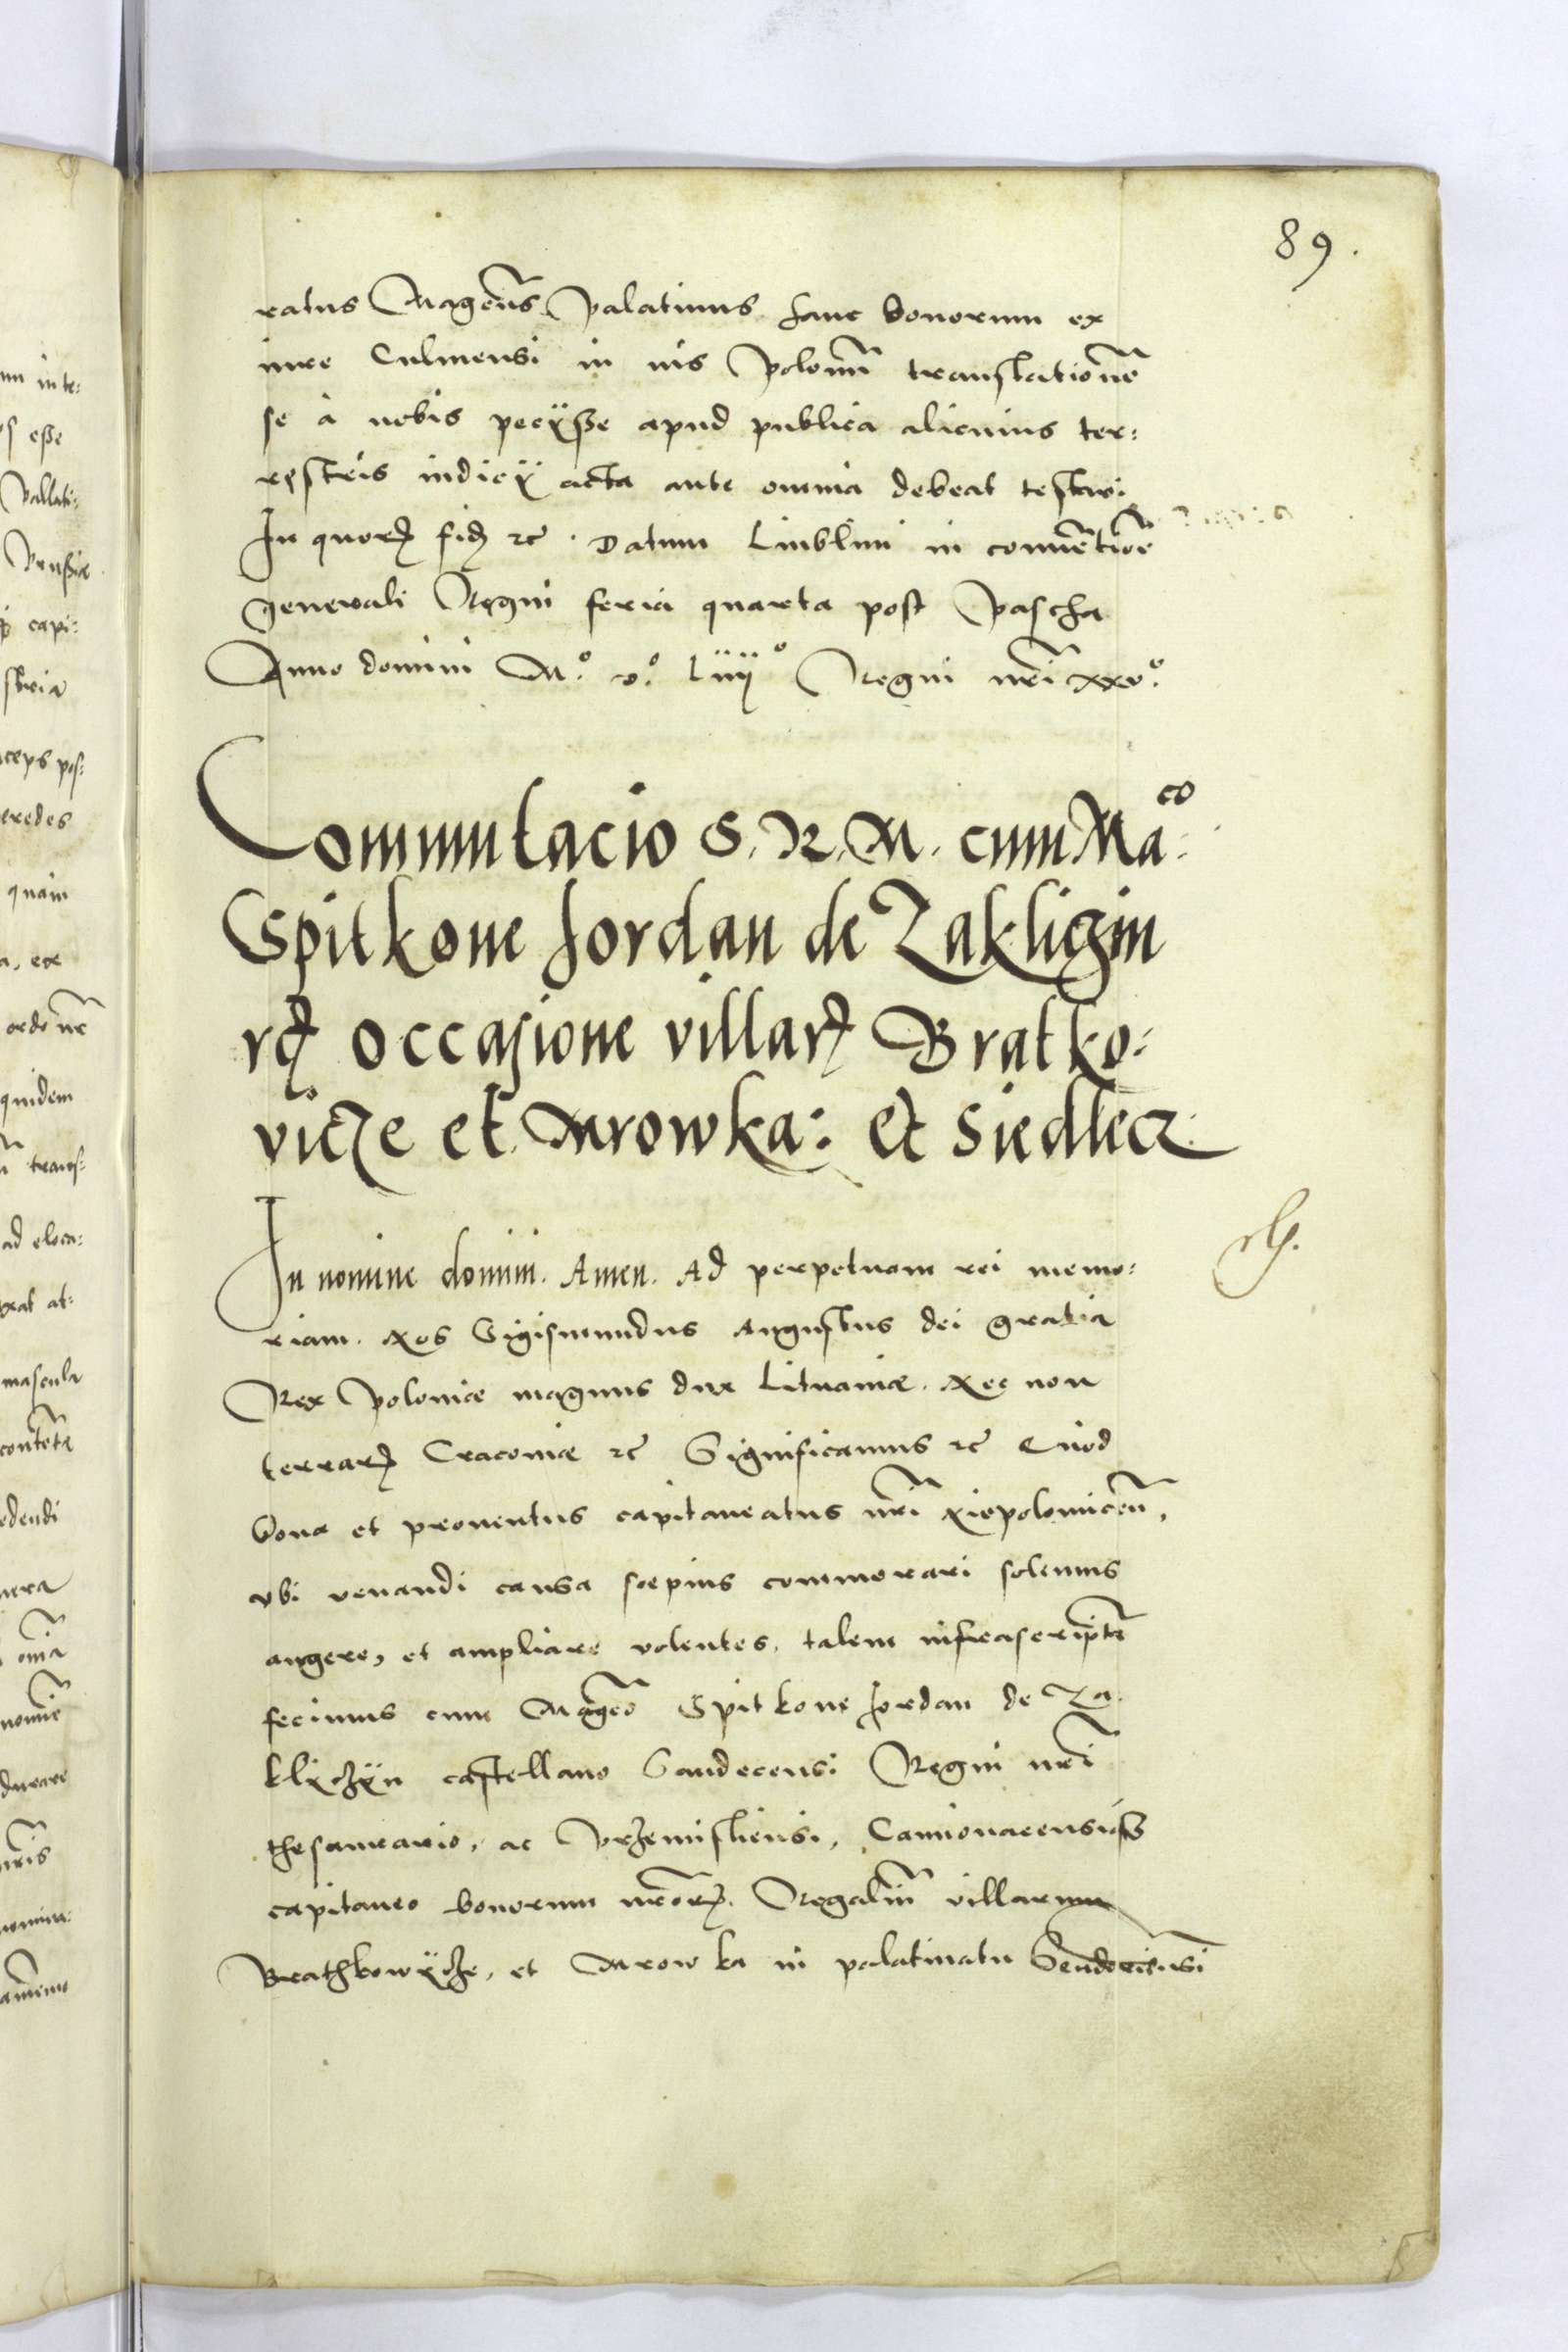 89.
ratus Magcus Palatinus hanc bonorum ex
iure Culmensi in ius Polonū translationē
se à nobis peciisse apud publica alicuius ter:
restris iudicÿ acta ante omnia debeat testari
In quorꝝ fidē ꝛc̄. Datum Liublini in conuētiōe
generali Regni feria quarta post Pascha
Anno domini M.º v.º Liiij º Regni nr̄i xxv.º
Commutacio S. R. M. cum Ma.co
Spitkone Jordan de Zakliczin
rꝝ occasione villarꝝ Bratko:
vicze et Mrowka: et Siedlecz
In nomine domini. Amen. Ad perpetuam rei memo:
riam. Nos Sigismundus Augustus dei gratia
Rex Poloniæ magnus dux Lituaniæ. Nec non
terrarꝝ Craconiæ ꝛc̄ Significamus ꝛc̄ Quod
bona et prouentus capitaneatus nr̄i Niepolomicen̄,
vbi venandi causa sœpius commorari solemus
augere, et ampliare volentes, talem infrascriptā
fecimus cum Mageo Spitkone Jordan de Za
kliczÿn castellano Sandecensi Regni nr̄i
thesaurario, ac Przemisliensi, Camionacensiqꝫ
capitaneo bonorum nr̄orꝝ Regaliū villarum
Brathkowÿcze, et Mrowka in palatinatu
mascula
quidem
quam
ad eloca:
capi: